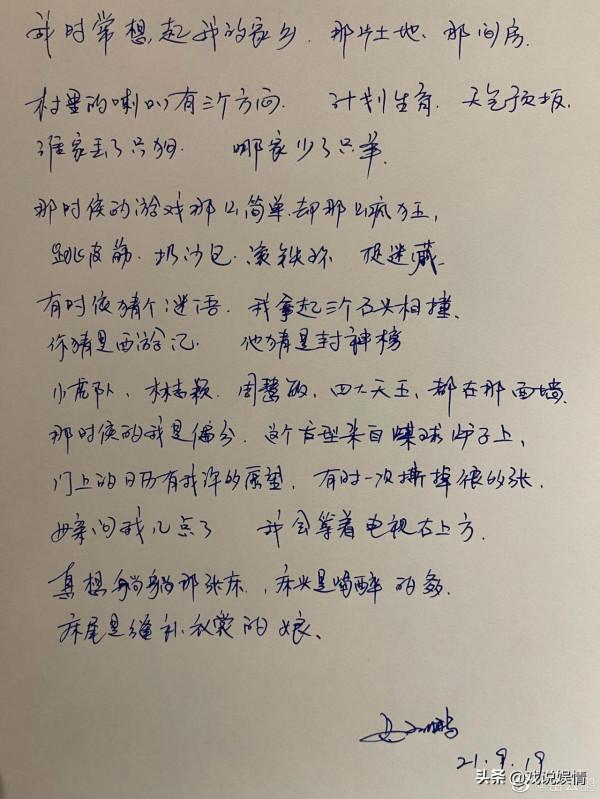 我时常想起我的家乡.那片土地、那间房.
村里的喇叭有三个方向. 计划生育. 天气预报.
谁家丢了只狗. 哪家少了只羊.
那时候的游戏那么简单.却那么疯狂,
跳皮筋.扔沙包.滚铁环 捉迷藏.
有时候猜个谜语. 我拿起三个石头相撞.
你猜是西游记. 他猜是封神榜
小虎队、林志颖.周慧敏,四大天王,都在那面墙.
那时候的我是偏分.这个发型来自煤球炉子上,
门上的日历有我许的愿望,有时一次撕掉很多张.
母亲问我几点了 我会等着电视右上方.
真想躺躺那张床.,床头是喝醉的爹.
床尾是缝补衣裳的娘、
21.9.19
头条 @戏说娱情